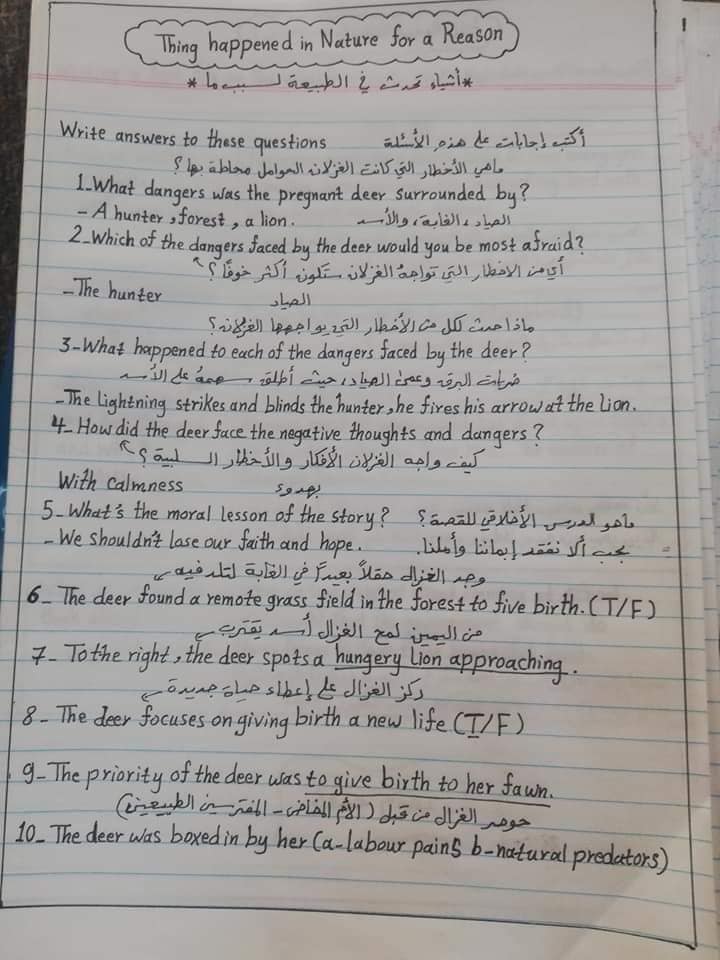 Thing happened in Nature for a Reason
* أشياء تحدث في الطبيعة لسبب ما *
Write answers to these questions أكتب إجابات على هذه الأسئلة
ماهي الأخطار التي كانت الغزلان الحوامل محاطة بها ؟
1_What dangers was the pregnant deer surrounded by?
- A hunter, forest, a lion. الصياد، الغابة، والأسد
2_Which of the dangers faced by the deer would you be most afraid?
أي من الاخطار التي تواجه الغزلان ستكون أكثر خوفًا ؟
_The hunter الصياد
ماذا حدث لكل من الأخطار التي يواجهها الغزلان ؟
3-What happened to each of the dangers faced by the deer?
ضربات البرق وعمى الصياد، حيث أطلق سهمهُ على الأسد
-The lightning strikes and blinds the hunter, he fires his arrow at the Lion.
4_ How did the deer face the negative thoughts and dangers?
كيف واجه الغزلان الأفكار والأخطار السلبية ؟
With calmness بهدوء
5_What's the moral lesson of the story? ماهو الدرس الأخلاقي للقصة ؟
- We shouldn't lose our faith and hope. يجب ألا نفقد إيماننا وأملنا.
وجد الغزال حقلاً بعيداً في الغابة لتلد فيه
6_ The deer found a remote grass field in the forest to five birth. (T/F)
من اليمين لمح الغزال أسد يقترب
7_ To the right, the deer spots a hungery Lion approaching.
ركز الغزال على إعطاء حياة جديدة
8_ The deer focuses on giving birth a new life (T/F)
9_The priority of the deer was to give birth to her fawn.
حوصر الغزال من قبل (الأم المخاض - المفترسين الطبيعين)
10_The deer was boxed in by her (a-labour pains b-natural predators)